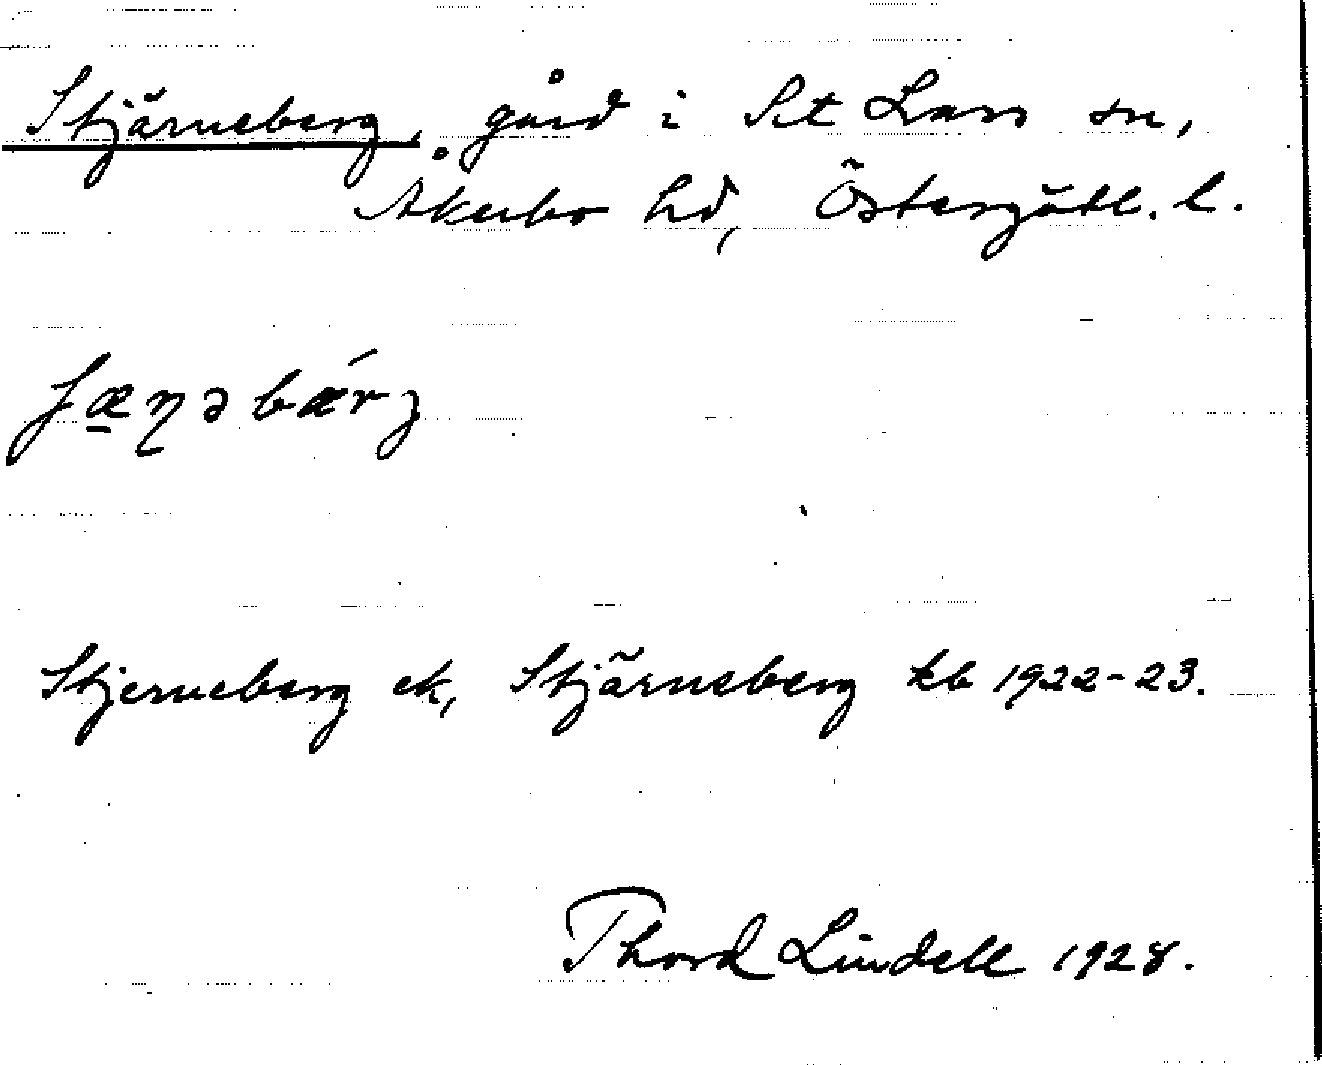 Stjärneberg, gård i S:t Lars sn,
Åkerbo hd, Östergötl. l.
ʃæɳəbǽrʒ
Stjerneberg ek, Stjärneberg kb 1922-23.
Thord Lindell 1928.